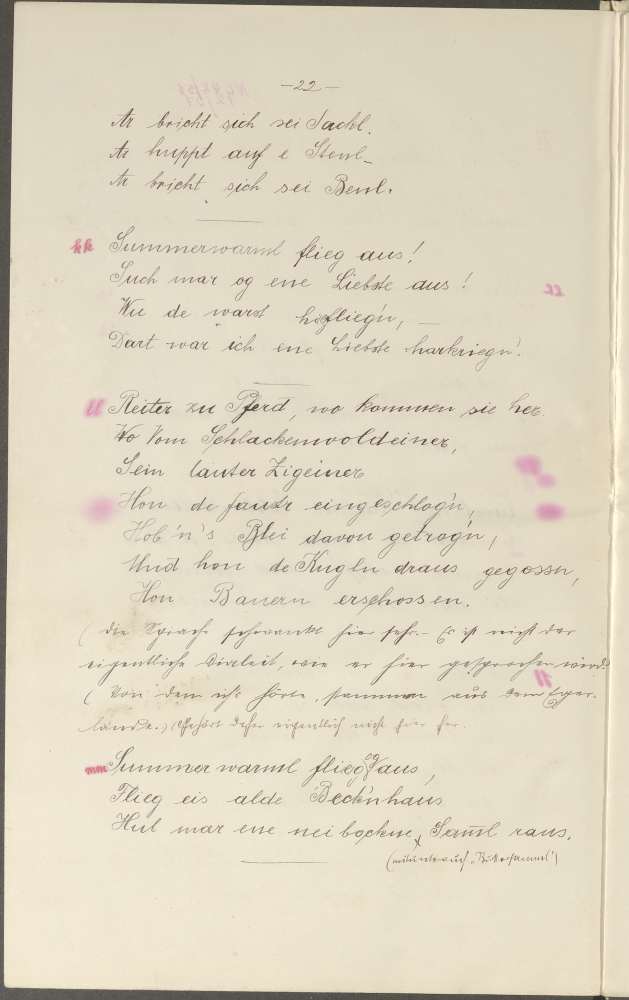 -22-
Ar bricht sich sei Sackl.
Ar huppt auf e Stenl-
Ar bricht sich sei Benl.
kk Summerwarml flieg aus!
Such mar og ene Liebste aus!
Wu de warst hifliegn, -
Dart war ich ene Liebste harkriegn.
ll Reiter zu Pferd, wo kommen sie her
Wo Vom Schlackenwoldeiner,
Sein lauter Zigeiner
Hon de fanstr eingeschlog'n,
Hob'n's Blei davon getrog'n,
Und hon de Kugln draus gegossn,
Hon Bauern erschossen.
(die Sprache schwankt hier sehr.- Es ist nicht der
eigentliche Dialeit, wie er hier gesprochen wird.
(Von den ich's hörte, stammen aus dem Eger-
lande.) (Gehört daher eigentlich nicht hier her.
mm Summerwarml flieg og aus,
Flieg eis alde Beck'nhaus
Hul mar ene nei bockne Samml raus.
(mitunter auch „Puttersamml")